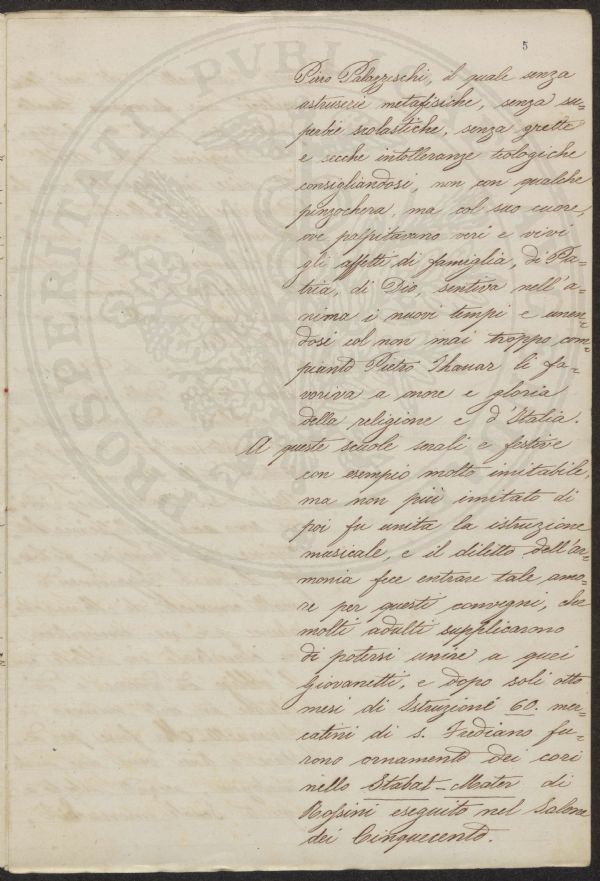 5
Pirro Palazzeschi, il quale senza
astruserie metafisiche, senza su=
perbie scolastiche, senza grette
e secche intolleranze teologiche
consigliandosi, non con qualche
pinzochera, ma col suo cuore,
ove palpitavano veri e vivi
gli affetti di famiglia, di Pa=
tria, di Dio, sentiva nell'a=
nima i nuovi tempi e unen=
dosi col non mai troppo com=
pianto Pietro Thouar li fa=
voriva a onore e gloria
della religione e d'Italia.
A queste scuole serali e festive
con esempio molto imitabile,
ma non più imitato di
poi fu unita la istruzione
musicale, e il diletto dell'ar=
monia fece entrare tale amo=
re per questi convegni, che
molti adulti supplicarono
di potersi unire a quei
Giovanetti, e dopo soli otto
mesi di Istruzione 60. mer=
catini di S. Frediano fu=
rono ornamento dei cori
nello Stabat-Mater di
Rossini eseguito nel Salone
dei Cinquecento.
PROSPERITATI PVBLICAE